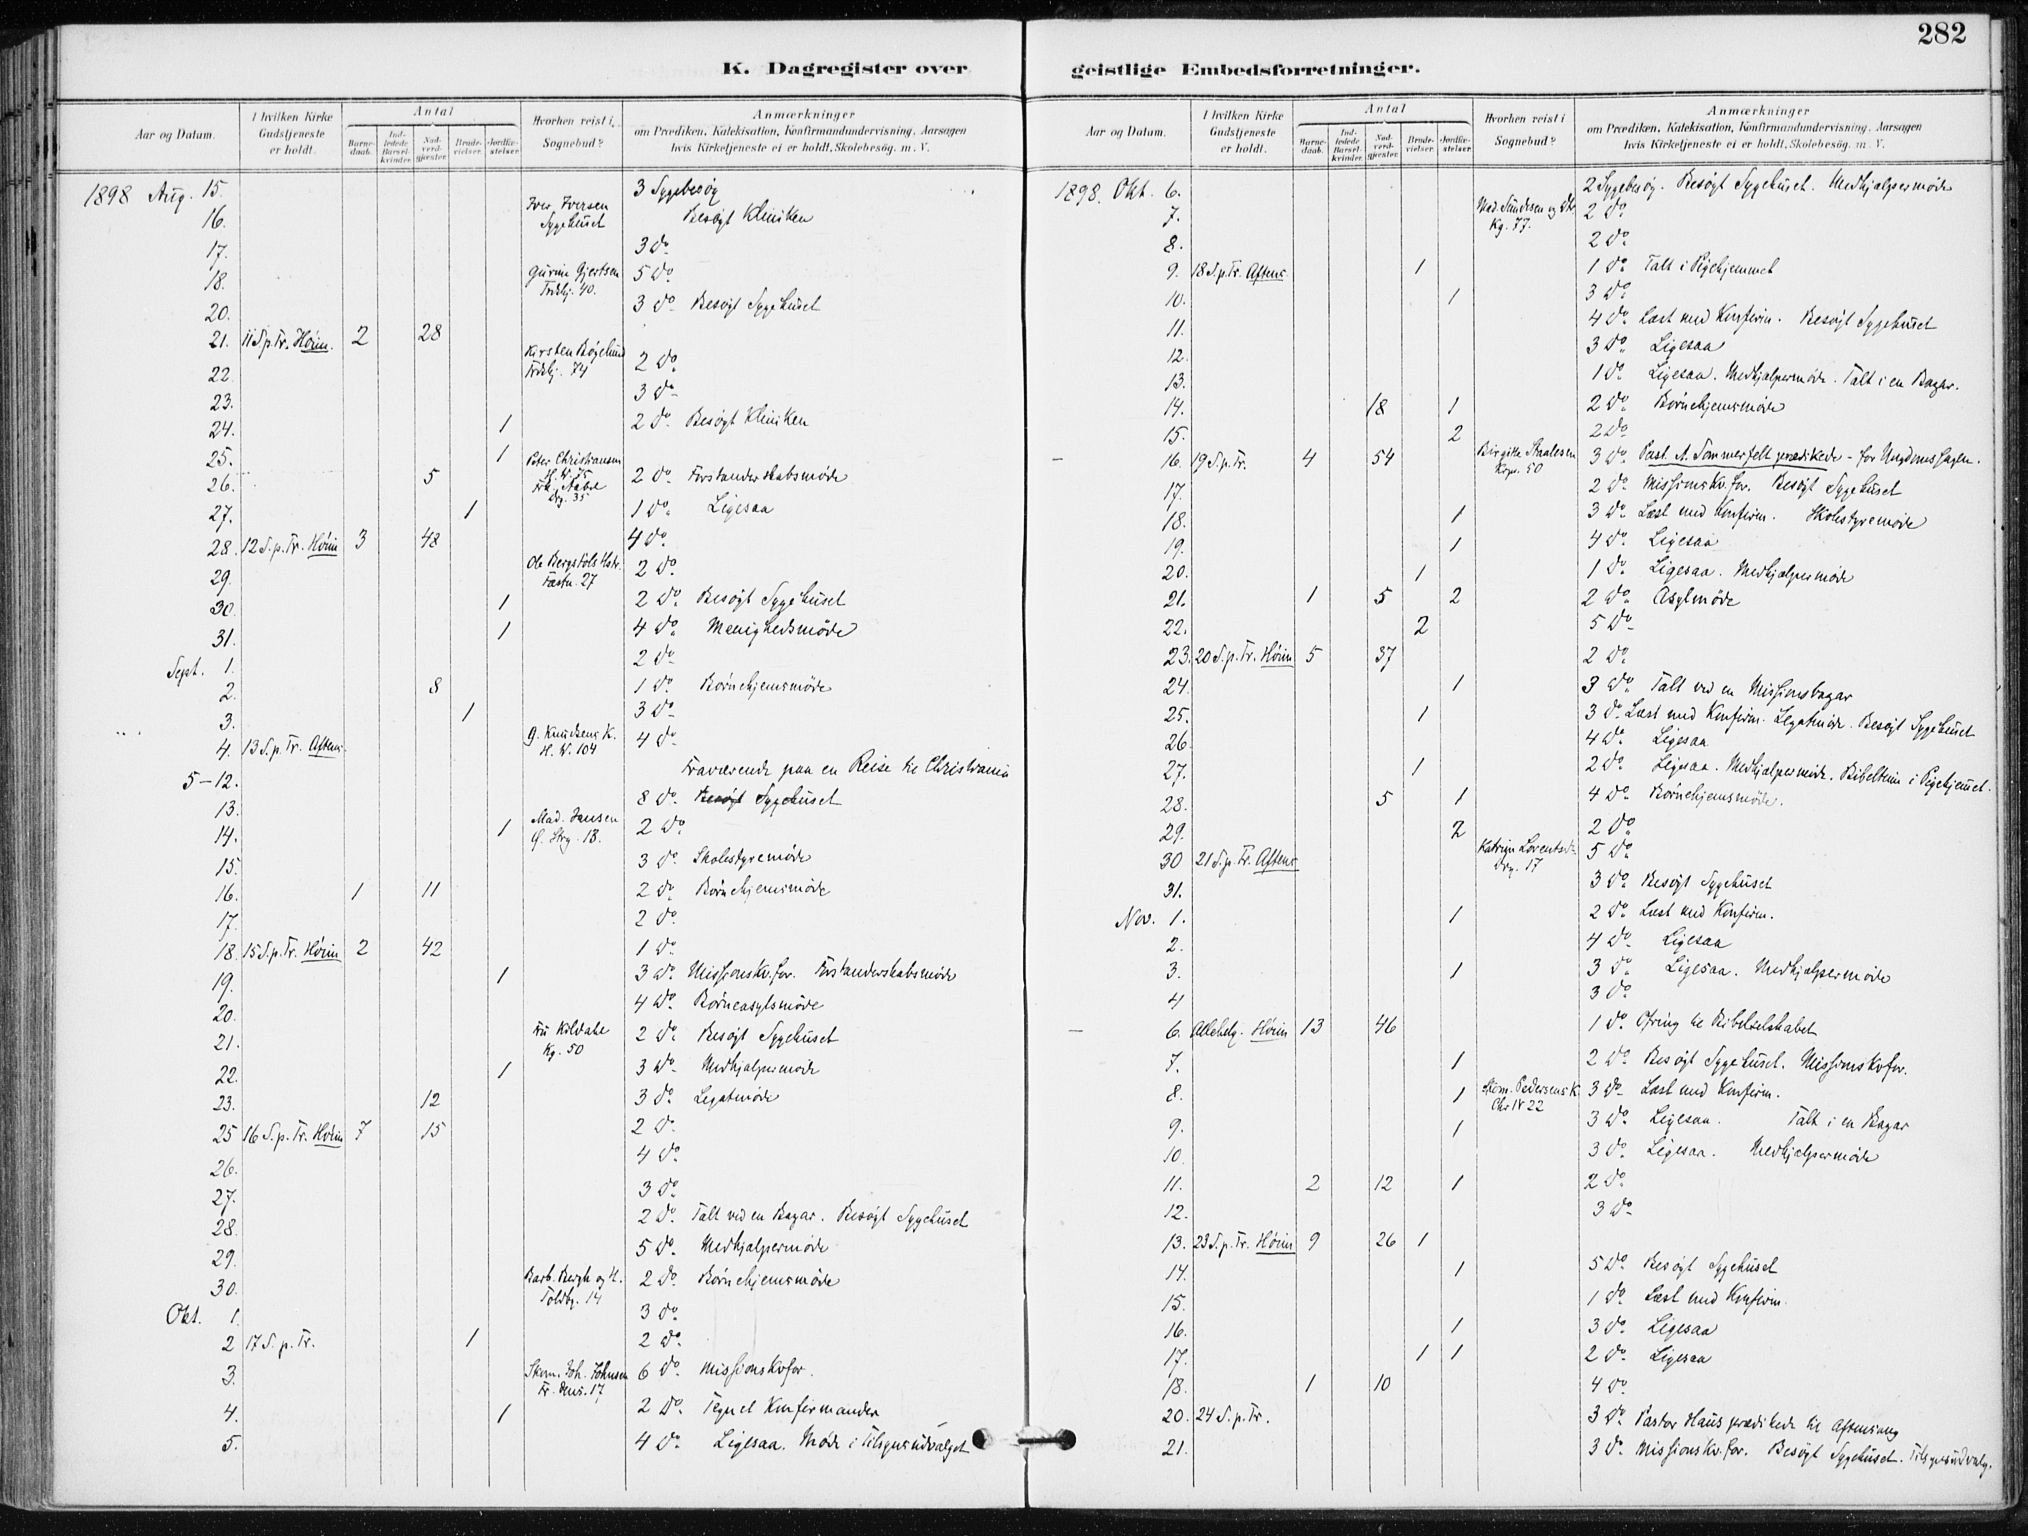 282
K. Dagregister over geistlige Embedsforretninger.
Aar og Datum. I hvilken Kirke Gudstjeneste er holdt. Antal Barnedaab. Indledede Barselkvinder. Nadverdgjester. Brudevielser. Jordfæstelser. Hvorhen reist i Sognebud? Anmærkninger om Prædiken, Katekisation, Konfirmandundervisning, Aarsagen hvis Kirketjeneste ei er holdt, Skolebesøg. m. V.
1898 Aug. 15. 3 Sygebesøg
16. Iver Iversen Sygehuset Besøgt Kliniken
17. 3 Do
18. Gurine Gjertsen 40. 5 Do
20. 3 Do Besøgt Sygehuset
21. 11 S. p. Tr. Høim. 2 28
22. Kirsten Bøgelund 74 2 Do
23. 3 Do
24. 1 2 Do Besøgt Kliniken
25. 1 Peter Christiansen H. W. 75
26. 5 35 2 Do Forstanderskabsmøde
27. 1 1 Do Ligesaa
28. 12 S. p. Tr. Høim 3 48 4 Do
29. Ole 27 2 Do
30. 1 2 Do Besøgt Sygehuset
31. 1 4 Do Menighedsmøde
Sept. 1. 2 Do
2. 8 1 Do Børnehjemsmøde
3. 1 3 Do
4. 13 S. p. Tr. Aftens. G. Knudsens K. H. W. 104 4 Do
5-12. Fraværende paa en Reise til Christiania
13. 8 Do Besøgt Sygehuset
14. 1 Mad. Jansen Ø. Strg. 18. 2 Do
15. 3 Do Skolestyremøde
16. 1 11 2 Do Børnehjemsmøde
17. 2 Do
18. 15 S. p. Tr. Høim 2 42 1 Do
19. 1 3 Do Missionskv.for. Forstanderskabsmøde
20. 4 Do Børneasylsmøde
21. Fru Kildahl Kg. 50 2 Do Besøgt Sygehuset
22. 1 3 Do Medhjælpermøde
23. 12 3 Do Legatmøde
25 16 S. p. Tr. Høim 7 15 2 Do
26. 4 Do
27. 3 Do
28. 2 Do Talt ved en Bazar. Besøgt Sygehuset
29. 5 Do Medhjælpermøde
30. Barb. Bergh og H. Toldbg. 14 2 Do Børnehjemsmøde
Okt. 1. 3 Do
2 17 S. p. Tr. 1 2 Do
3. Skom. Joh. Johnsen 17 6 Do Missionskvfor.
4. 1 2 Do Tegnet Konfirmander
5. 4 Do Ligesaa. Møde i Tilsynsudvalget
Aar og Datum. I hvilken Kirke Gudstjeneste er holdt. Antal Barnedaab. Indledede Barselkvinder. Nadverdgjester. Brudevielser. Jordfæstelser. Hvorhen reist i Sognebud? Anmærkninger om Prædiken, Katekisation, Konfirmandundervisning, Aarsagen hvis Kirketjeneste ei er holdt, Skolebesøg. m. V.
1898. Okt. 6. 2 Sygebesøg. Besøgt Sygehuset. Medhjælpermøde
7. Mad. Kg. 77. 2 Do
8. 2 Do
9. 18 S. p. Tr. Aftens 1 1 Do Talt i Pigehjemmet
10. 1 3 Do
11. 4 Do Læst med Konfirm. Besøgt Sygehuset
12. 3 Do Ligesaa
13. 1 Do Ligesaa. Medhjælpermøde. Talt i en Bazar.
14. 18 1 2 Do Børnehjemsmøde
15. 2 2 Do
16. 19 S. p. Tr. 4 54 Birgitte 50 3 Do Past. A. Sommerfelt prædikede - for Ungdomssagen.
17. 2 Do Missionskv.for. Besøgt Sygehuset
18. 1 3 Do Læst med Konfirm. Skolestyremøde
19. 1 4 Do Ligesaa
20. 1 1 Do Ligesaa. Medhjælpermøde
21. 1 5 2 2 Do Asylmøde
22. 2 5 Do
23. 20 S. p. Tr. Høim 5 37 2 Do
24. 1 3 Do Talt ved en Missionsbazar
25. 1 3 Do Læst med Konfirm. Legatmøde. Besøgt Sygehuset
26. 4 Do Ligesaa
27. 1 2 Do Ligesaa. Medhjælpermøde. Bibeltime i Pigehjemmet.
28. 5 1 4 Do Børnehjemsmøde.
29. 2 2 Do
30 21 S. p. Tr. Aftens Katrine Lorentsd. Drg. 17 5 Do
31. 3 Do Besøgt Sygehuset
Nov. 1. 1 2 Do Læst med Konfirm.
2. 4 Do Ligesaa
3. 1 3 Do Ligesaa. Medhjælpermøde
4 3 Do
6. Allehelg. Høim 13 46 1 Do Ofring til Bibelselskabet
7. 1 2 Do Besøgt Sygehuset. Missionskvfor.
8. 1 Skom. Pedersens K. 22 3 Do Læst med Konfirm.
9. 1 3 Do Ligesaa. Talt i en Bazar
10. 3 Do Ligesaa. Medhjælpermøde
11. 2 12 1 2 Do
12. 3 Do
13. 23 S. p. Tr. Høim 9 26 1
14. 1 5 Do Besøgt Sygehuset
15. 1 Do Læst med Konfirm.
16. 1 3 Do Ligesaa
17. 1 1 2 Do Ligesaa
18. 1 10 4 Do
20. 24 S. p. Tr. 3 Do Pastor Haus prædikede til Aftensang
21. 3 Do Missionskv.for. Besøgt Sygehuset. Tilsynsudvalg.